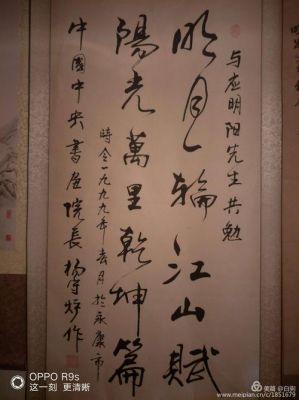 与应明阳先生共勉
明月一轮江山赋
陽光萬里乾坤篇
時令一九九九年 月於永康市
中國中央書画院長 楊 作
OPPO R9s
这一刻 更清晰
美篇 @白别
www.meipian.cn/c/1851679